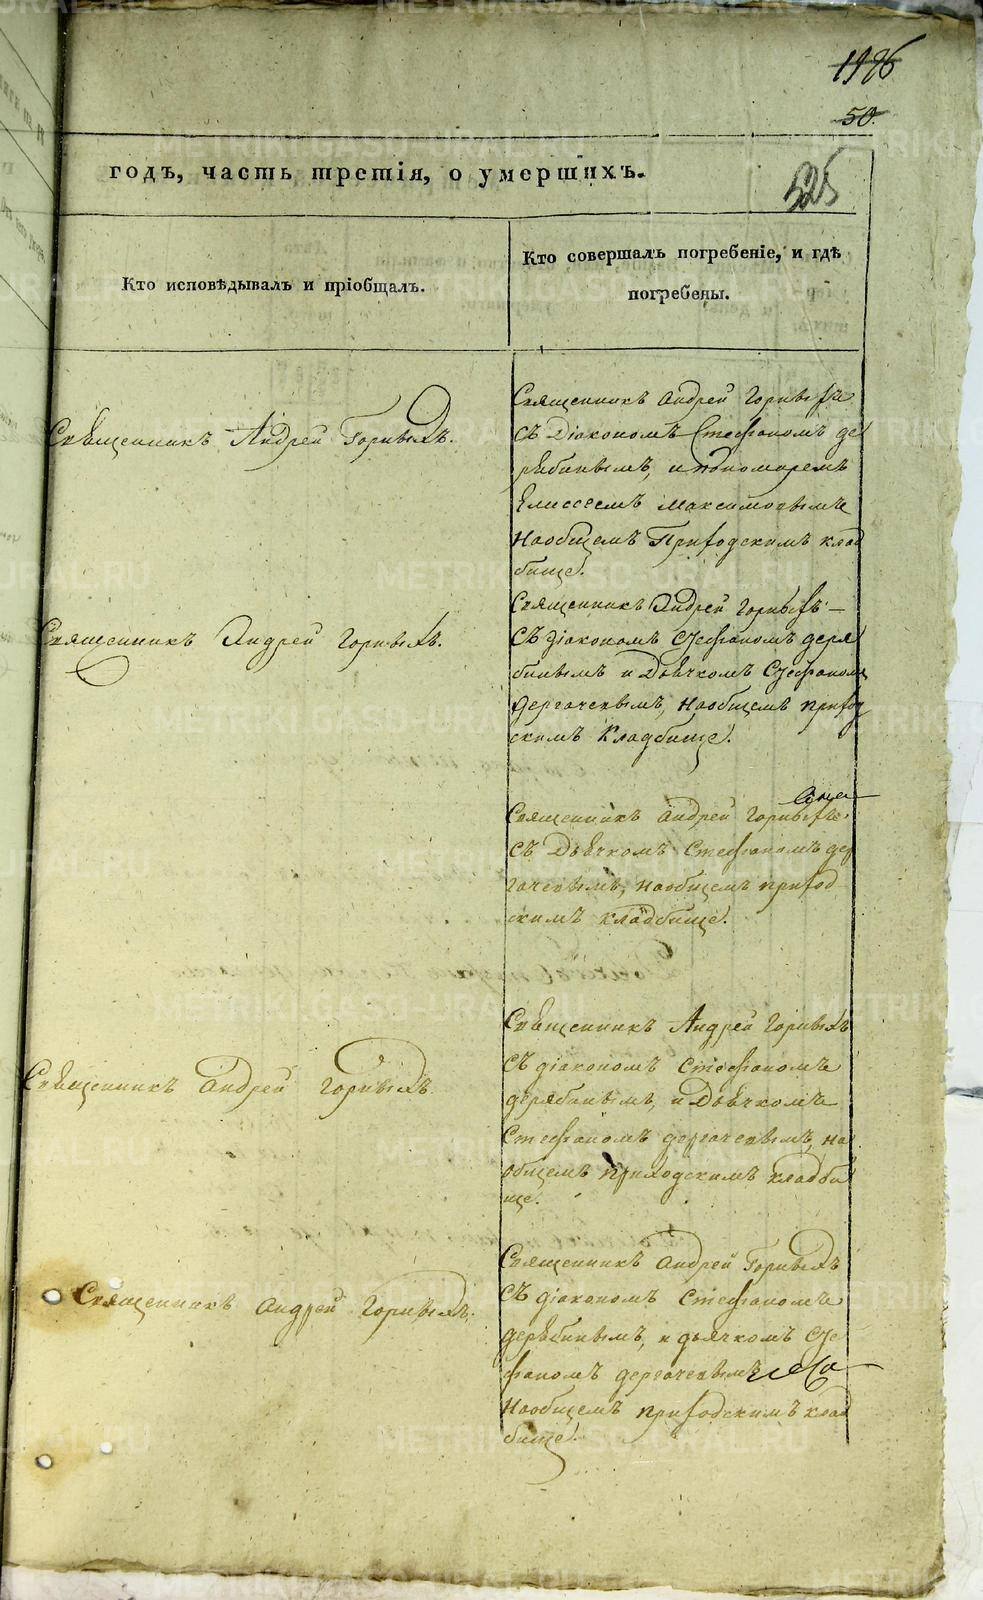 1196
50.
годъ, часть третія, о умершихъ.
525
Кто исповѣдывалъ и пріобщалъ.
Кто совершалъ погребеніе, и гдѣ
погребены.
Священникъ Андрей Горныхъ.
Священникъ Андрей Горныхъ
съ Діакономъ Стефаномъ де
рябинымъ, и пономаремъ
Елиссеемъ Максимовымъ
наобщемъ Приходскимъ клад
бище.
Священникъ Андрей Горныхъ.
Священникъ Андрей Горныхъ –
съ діакономъ Стефаномъ деря
бинымъ и Дьячкомъ Стефаномъ
дергачевымъ, наобщемъ приход
скимъ Кладбище.
Священникъ Андрей Горныхъ
съ Дьячкомъ Стефаномъ дер
гачевымъ, наобщемъ приход
скимъ кладбище.
Священникъ Андрей Горныхъ.
Священникъ Андрей Горныхъ
съ діакономъ Стефаномъ
дерябинымъ, и Дьячкомъ
Стефаномъ дергачевымъ, на
общемъ приходскимъ кладби
ще.
Священникъ Андрей Горныхъ.
Священникъ Андрей Горныхъ
съ діакономъ Стефаномъ
дерябинымъ, и дьячкомъ Сте
фаномъ дергачевымъ
наобщемъ приходскимъ клад
бище.
METRIKI.GASO-URAL.RU